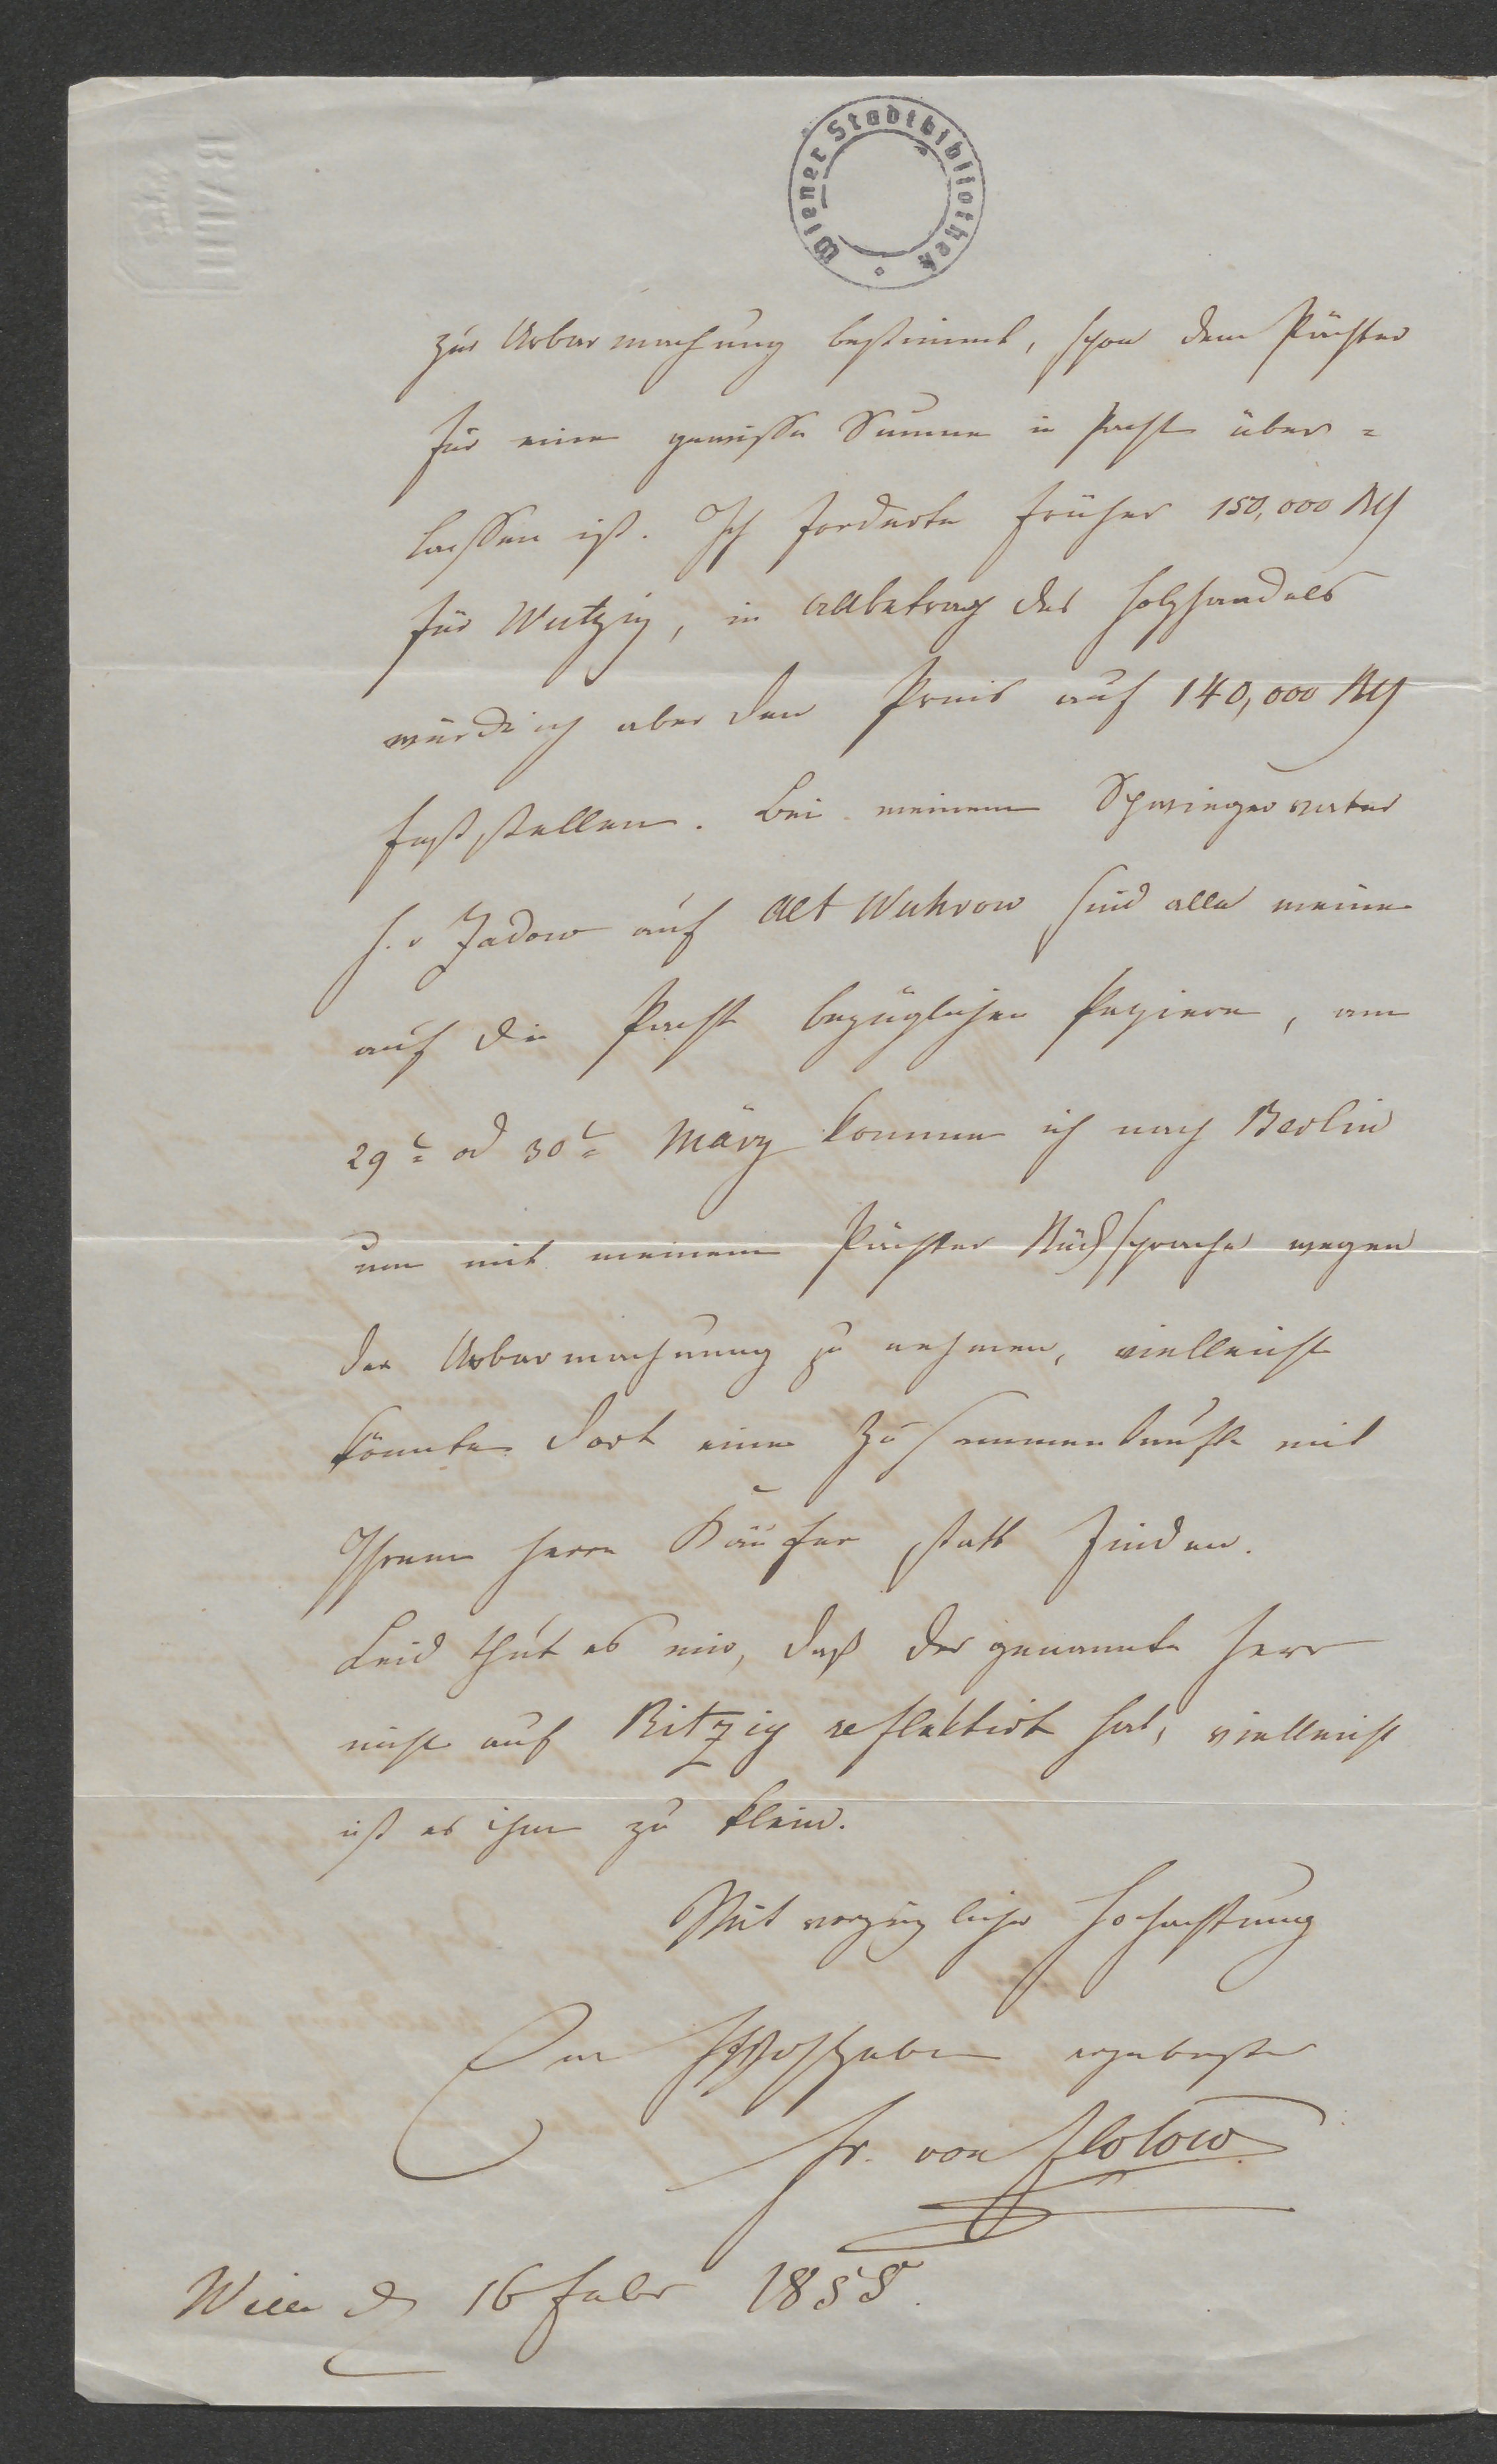 BATH
Wiener Stadtbibliothek
zur Urbarmachung bestimmt, schon dem Pächter
für eine gewisse Summe in Pacht über=
lassen ist. Ich forderte früher 150,000 Rth
für Wutzig, in Abbetrag des Holzhandels
würde ich aber den Preis auf 140,000 Rth
feststellen. Bei meinem Schwiegervater
H. v Zadow auf Alt Wuhrow sind alle meine
auf die Pacht bezüglichen Papiere, am
29t od 30t März komme ich nach Berlin
um mit meinem Pächter Rücksprache wegen
der Urbarmachung zu nehmen, vielleicht
könnte dort eine Zusammenkunft mit
Ihrem Herrn Käufer statt finden.
Leid thut es mir, daß der genannte Herr
nicht auf Ritzig reflektirt hat, vielleicht
ist es ihm zu klein.
Mit vorzüglicher Hochachtung
Euer ergebenster
Fr. von Flotow
Wien d 16 Febr 1855.